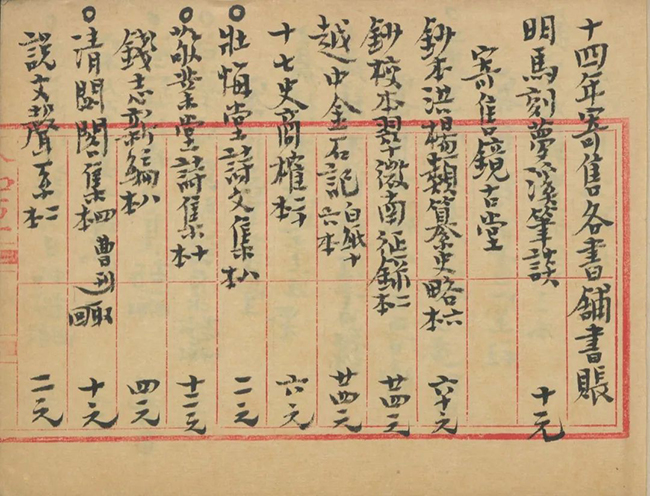 十四年寄售各書舖書賬
明馬刻夢溪筆談 十元
寄售鏡古堂
鈔本洪楊類纂史略 六本 六十元
鈔校本翠微南征錄 二本 廿四元
越中金石記 白紙十六本 廿四元
十七史商榷 六元
○壯悔堂詩文集 八本 二元
○敬業堂詩集 十本 十二元
錢志新編 八本 四元
○清閟閣集 四本 曹刊 取回 十元
說文聲系 二本 二元